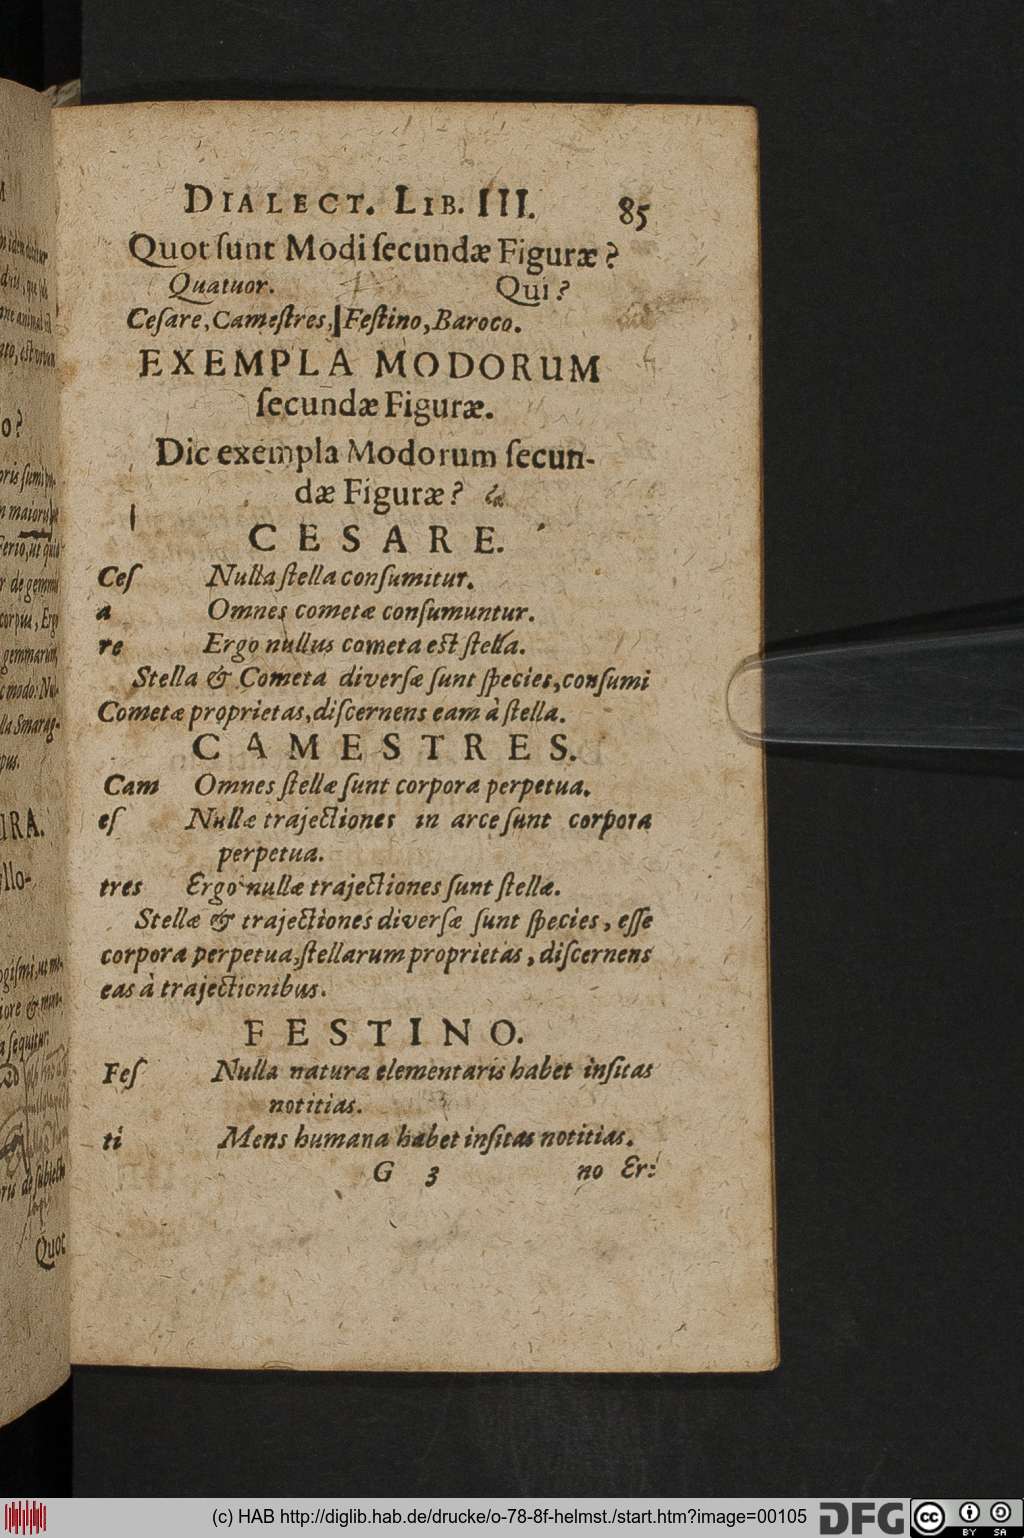 DIALECT. LIB. III. 85
Quot ſunt Modi ſecundæ Figuræ?
Quatuor. Qui?
Ceſare, Cameſtres, Feſtino, Baroco.
EXEMPLA MODORUM
ſecundæ Figuræ.
Dic exempla Modorum ſecun-
dæ Figuræ?
CESARE.
Ceſ Nulla ſtella conſumitur.
a Omnes cometæ conſumuntur.
re Ergo nullus cometa eſt ſtella.
Stella & Cometa diverſæ ſunt ſpecies, conſumi
Cometæ proprietas, diſcernens eam à ſtella.
CAMESTRES.
Cam Omnes ſtellæ ſunt corpora perpetua.
eſ Nullæ trajectiones in arce ſunt corpora
perpetua.
tres Ergo nullæ trajectiones ſunt ſtellæ.
Stellæ & trajectiones diverſæ ſunt ſpecies, eſſe
corpora perpetua, ſtellarum proprietas, diſcernens
eas à trajectionibus.
FESTINO.
Feſ Nulla natura elementaris habet inſitas
notitias.
ti Mens humana habet inſitas notitias.
G 3 no Er:
(c) HAB http://diglib.hab.de/drucke/o-78-8f-helmst./start.htm?image=00105 DFG cc BY SA